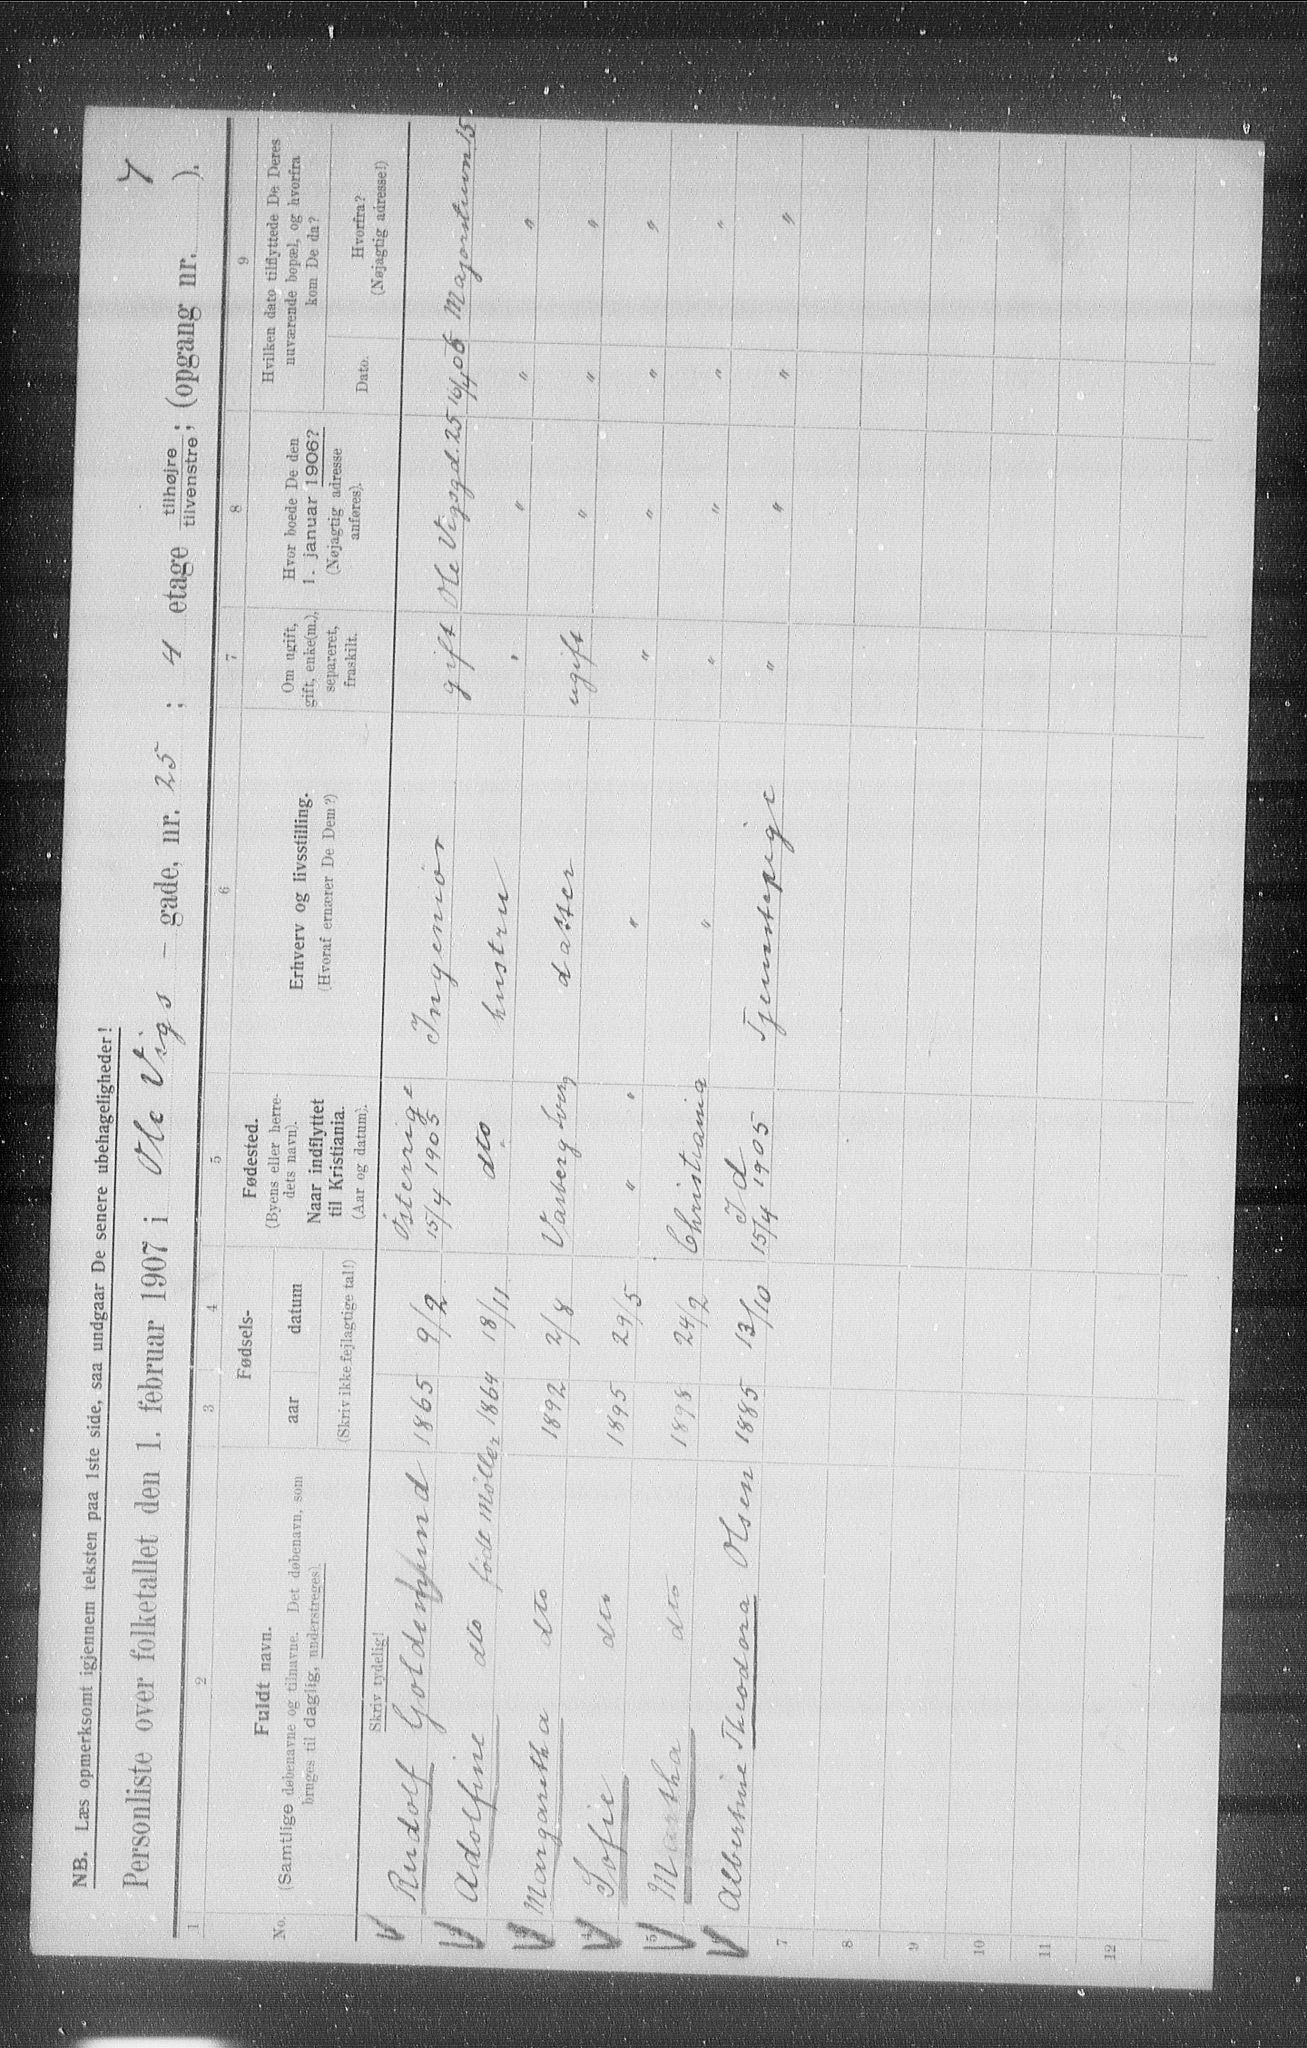 NB. Læs opmerksomt igjennem teksten paa 1ste side, saa undgaar De senere ubehageligheder!
7
Personliste over folketallet den 1. februar 1907 i Ole Vigs - gade, nr. 25 ; 4 etage tilhøjre tilvenstre; (opgang nr. ).
1 2 3 4 5 6 7 8 9
No.
Fuldt navn.
(Samtlige døbenavne og tilnavne. Det døbenavn, som
bruges til daglig, understreges).
Skriv tydelig!
Fødsels-
aar datum
(Skriv ikke fejlagtige tal!)
Fødested.
(Byens eller herre-
dets navn).
Naar indflyttet
til Kristiania.
(Aar og datum).
Erhverv og livsstilling.
(Hvoraf ernærer De Dem?)
Om ugift,
gift, enke(m.),
separeret,
fraskilt.
Hvor boede De den
1. januar 1906?
(Nøjagtig adresse
anføres).
Hvilken dato tilflyttede De Deres
nuværende bopæl, og hvorfra
kom De da?
Dato.
Hvorfra?
(Nøjagtig adresse!)
Rudolf 1865 9/2 Østerrige 15/4 1905 Ingeniør gift Ole Vigsgd. 25 16/4 06 Majorstuen 15
Adolfine dto født Møller 1864 18/11 dto hustru " " " "
Margaretha dto 1892 2/8 Varberg datter ugift " " "
4 Sofie dto 1895 29/5 " " " " " " "
5 Martha dto 1898 24/2 Christiania " " " " "
Albertine Theodora Olsen 1885 13/10 Id 15/4 1905 Tjenestepige " " " "
7
8
9
10
11
12